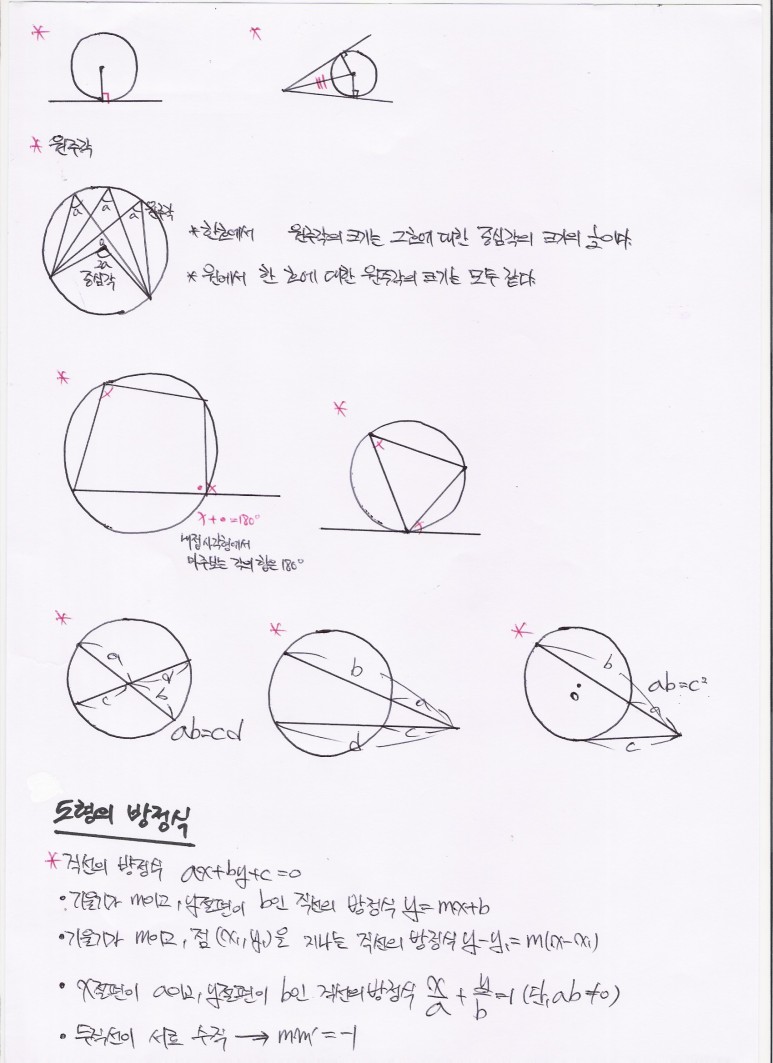 * *
* 원주각
a a a 원주각
2a
중심각
* 한 호에서 원주각의 크기는 그 호에 대한 중심각의 크기의 1/2이다.
* 원에서 한 호에 대한 원주각의 크기는 모두 같다.
* *
x x
• x x
x + • = 180°
내접사각형에서
마주보는 각의 합은 180°
* * *
a d c b
ab=cd
b a c d
b a c
o
ab=c²
도형의 방정식
* 직선의 방정식 ax+by+c=0
• 기울기가 m이고, y절편이 b인 직선의 방정식 y=mx+b
• 기울기가 m이고, 점 (x₁, y₁)을 지나는 직선의 방정식 y-y₁=m(x-x₁)
• x절편이 a이고, y절편이 b인 직선의 방정식 x/a + y/b =1 (단, ab≠0)
• 두직선이 서로 수직 → mm'=-1